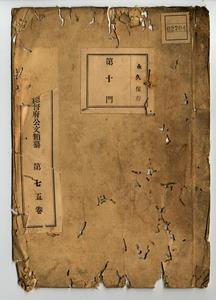 永久保存
第十門
總督府公文類纂 第七五卷